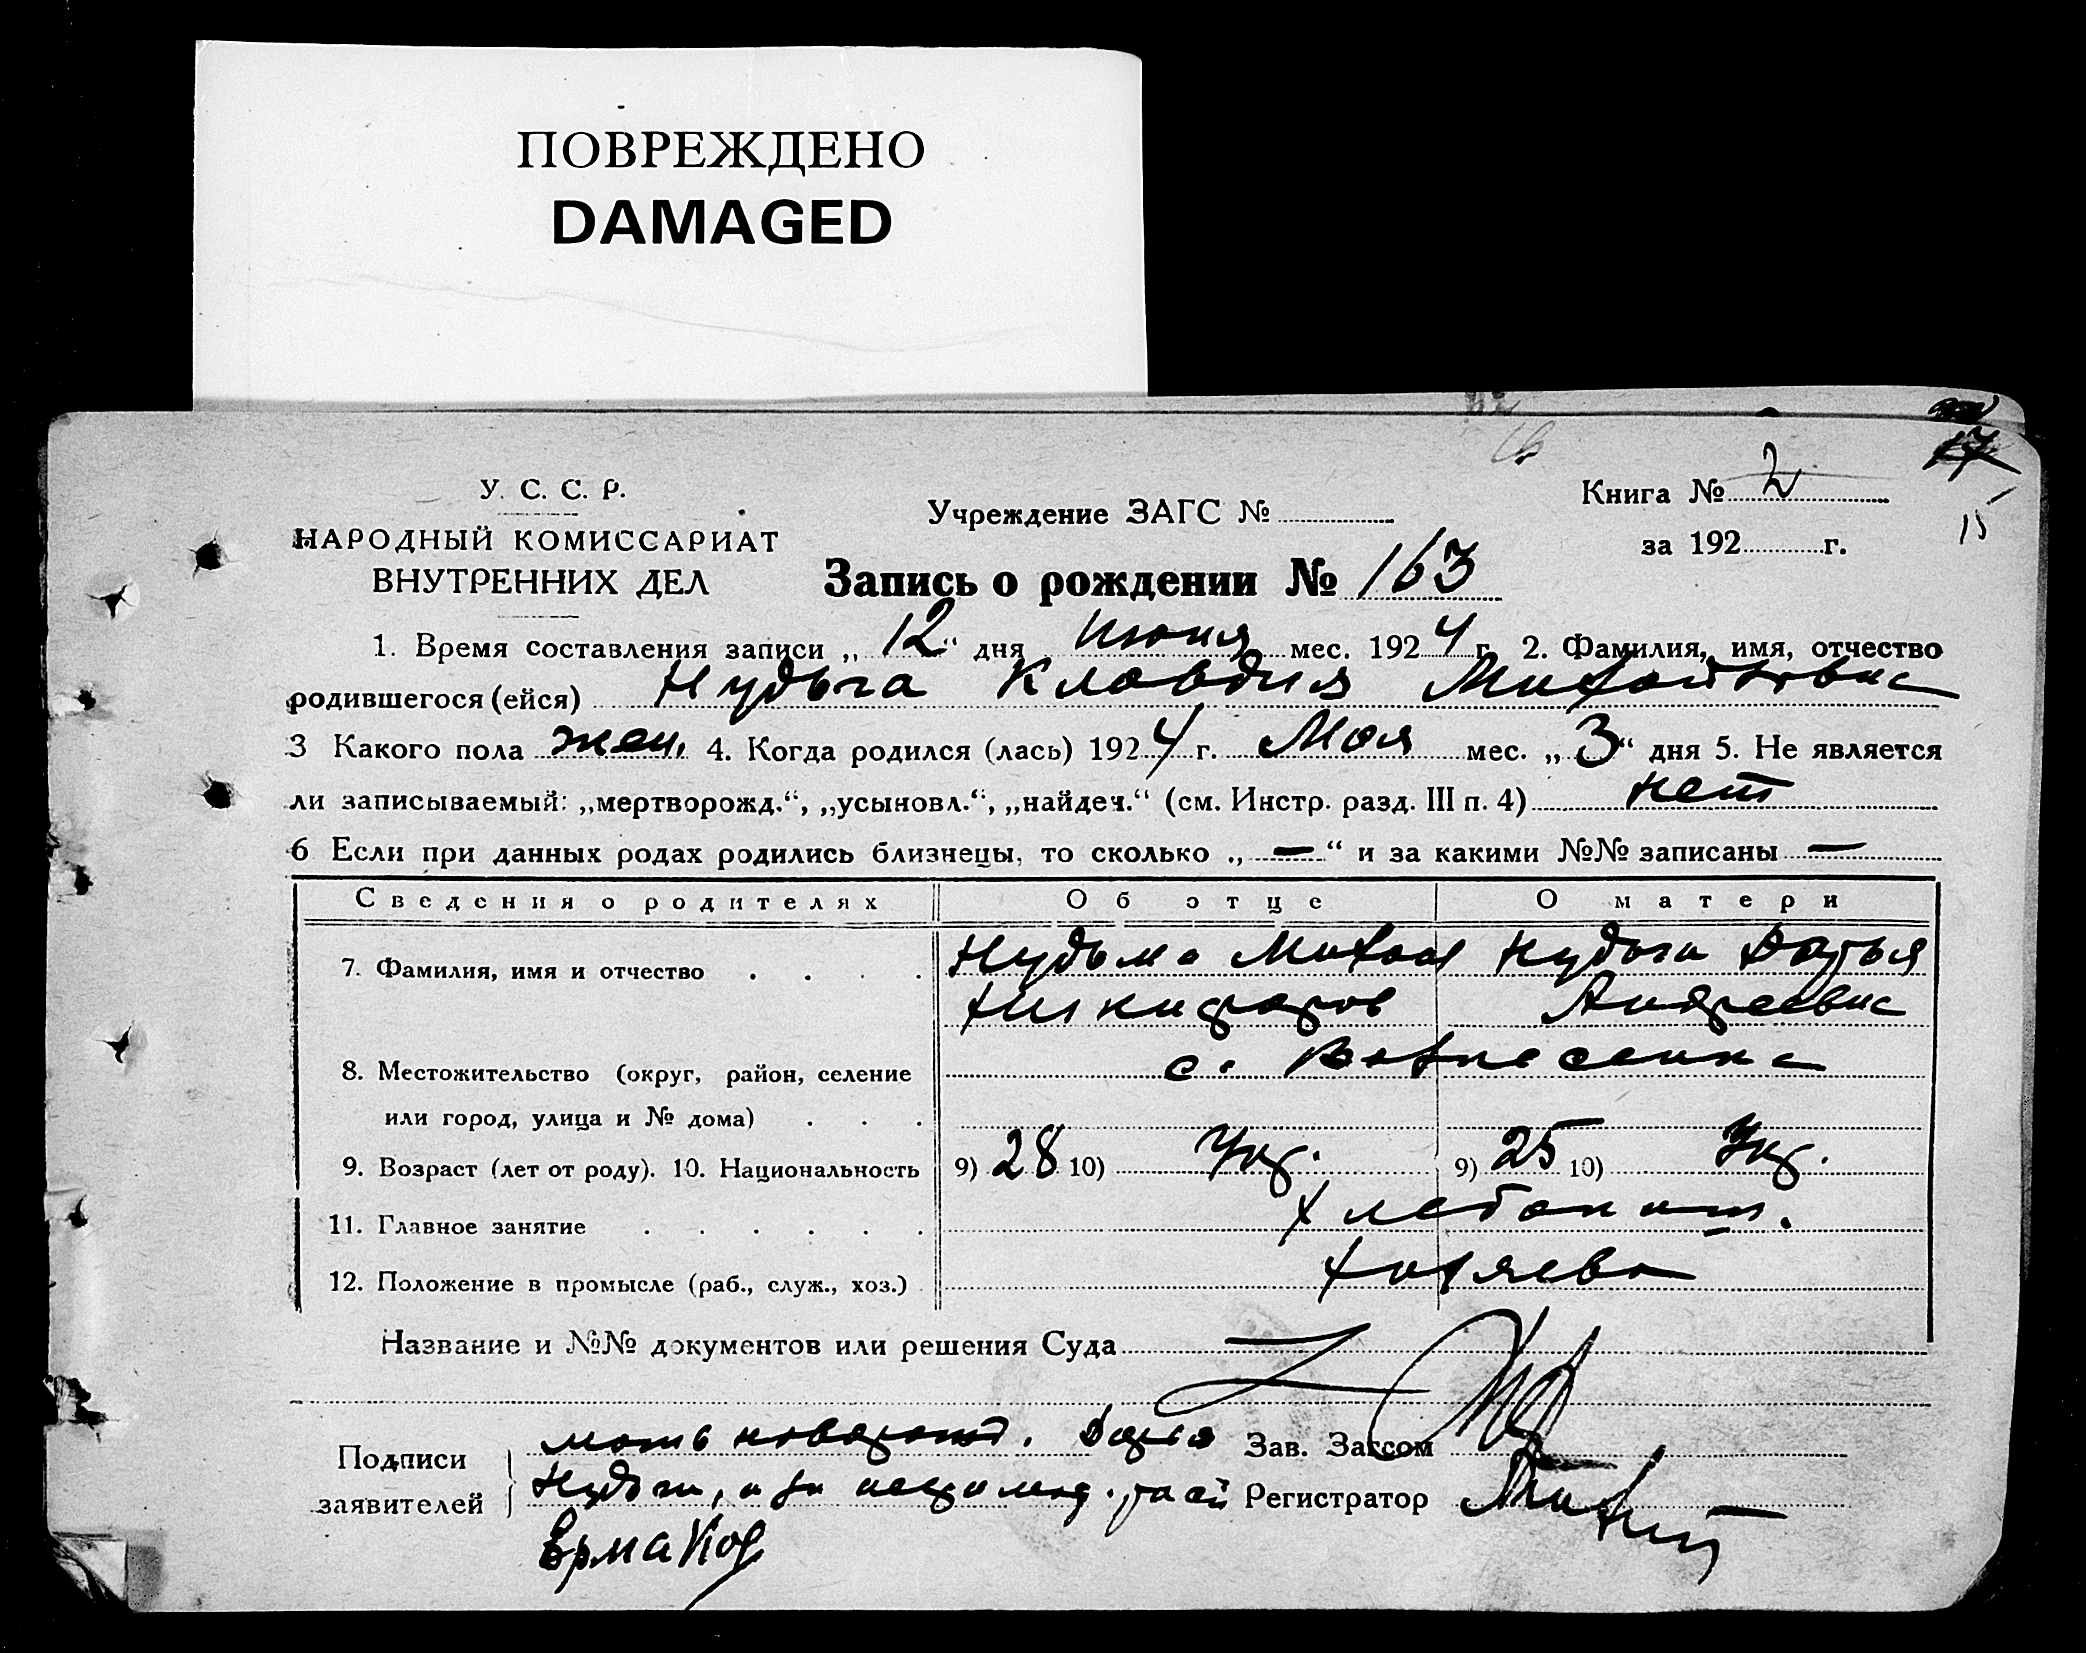 ПОВРЕЖДЕНО
DAMAGED
17
15
У. С. С. Р.
НАРОДНЫЙ КОМИССАРИАТ
ВНУТРЕННИХ ДЕЛ
Учреждение ЗАГС №
Книга № 2
за 192 г.
Запись о рождении № 163
1. Время составления записи „12“ дня Июня мес. 1924 г. 2. Фамилия, имя, отчество
родившегося (ейся) Нудьга Клавдия Михайловна
3 Какого пола жен. 4. Когда родился (лась) 1924 г. Мая мес. „3“ дня 5. Не является
ли записываемый: „мертворожд.“, „усыновл.“, „найдеч.“ (см. Инстр. разд. III п. 4) нет
6 Если при данных родах родились близнецы, то сколько „—“ и за какими №№ записаны —
Сведения о родителях Об отце О матери
7. Фамилия, имя и отчество Нудьга Михаил Нудьга Дарья
Никифоров Андреевна
8. Местожительство (округ, район, селение с. Вознесенка
или город, улица и № дома)
9. Возраст (лет от роду). 10. Национальность 9) 28 10) Укр. 9) 25 10) Укр.
11. Главное занятие хлебопаш.
12. Положение в промысле (раб., служ., хоз.) хозяева
Название и №№ документов или решения Суда
Подписи заявителей мать новорожд. Дарья Зав. Загсом
Нудьга, а за Регистратор
Ермаков